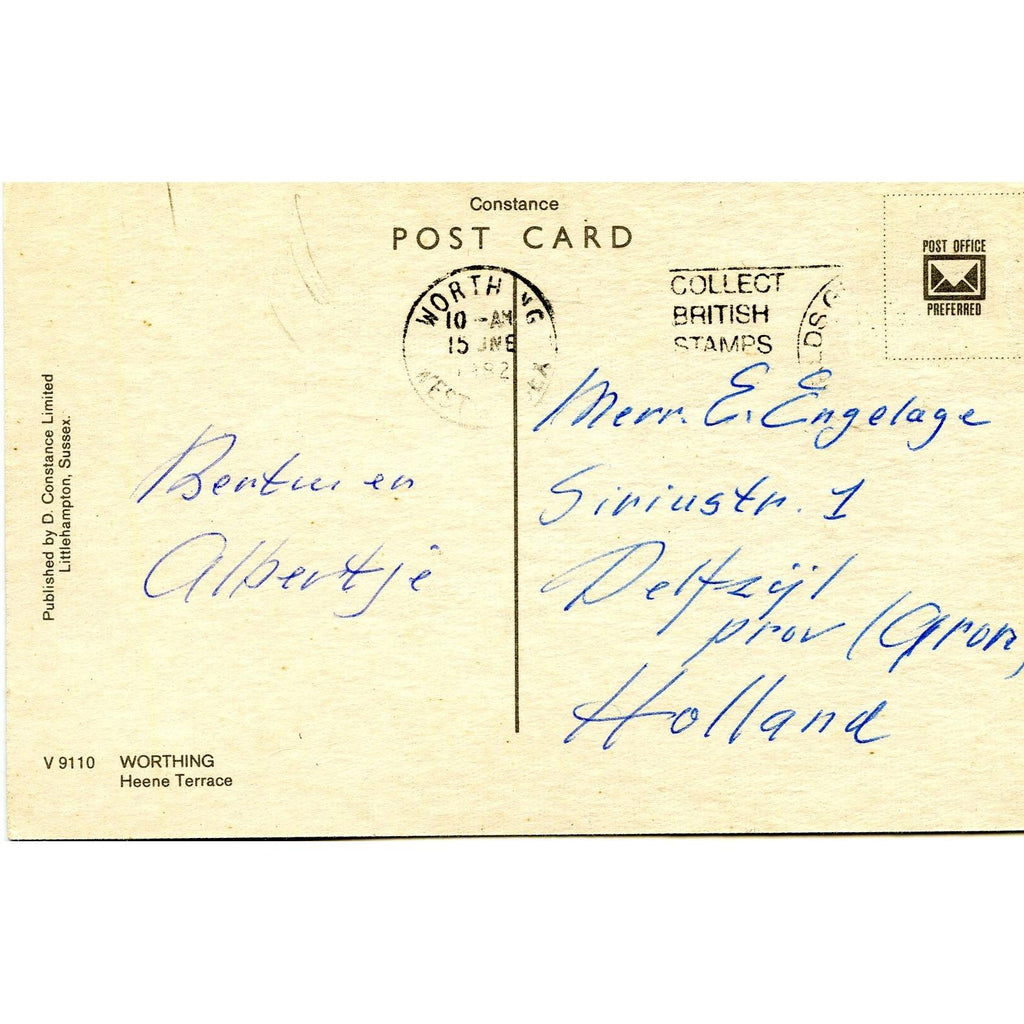 Constance
POST CARD
POST OFFICE
PREFERRED
WORTHING
10 -AM
15 JNE
WEST
COLLECT
BRITISH
STAMPS
Published by D. Constance Limited
Littlehampton, Sussex.
en
Albertje
E. Engelage
Siriusstr. 1
Delfzijl
prov (Gron)
Holland
V 9110 WORTHING
Heene Terrace